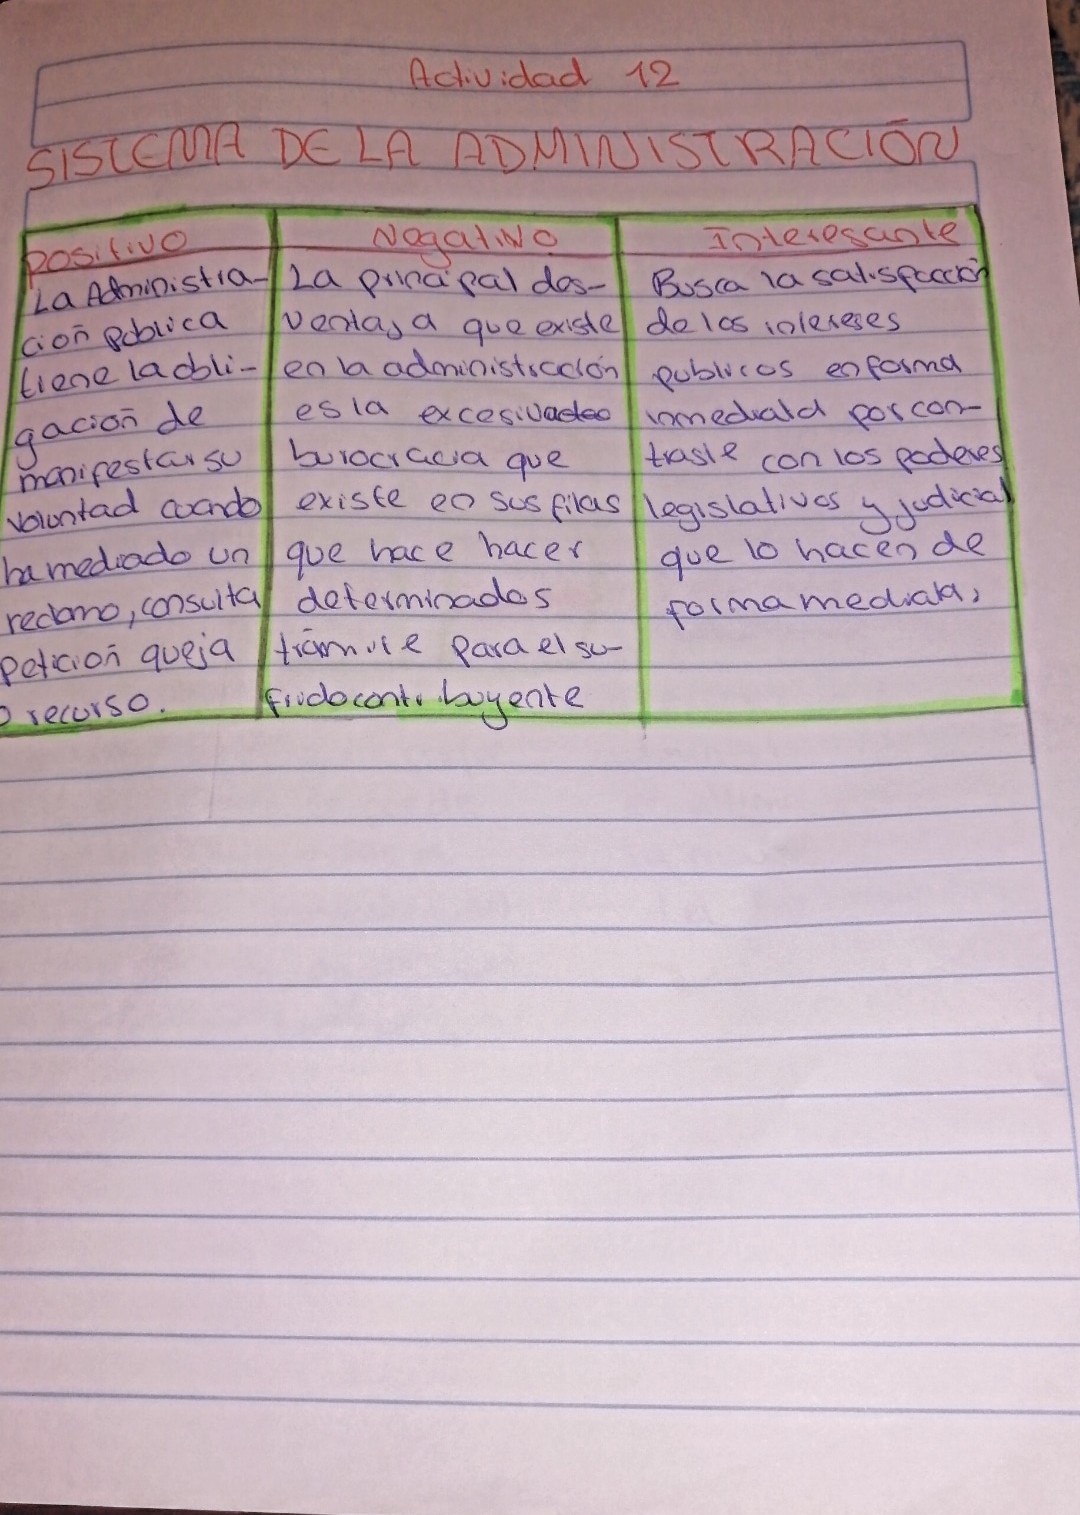 Actividad 12
SISTEMA DE LA ADMINISTRACIÓN
Positivo
La Administra-
ción pública
tiene la obli-
gación de
manifestar su
voluntad cuando
ha mediado un
reclamo, consulta
Petición queja
o recurso.
Negativo
La principal des-
ventaja que existe
en la administración
es la excesiva
burocracia que
existe en sus filas
que hace hacer
determinados
trámite para el su-
frido contribuyente
Interesante
Busca la satisfacción
de los intereses
publicos en forma
inmediata por con-
traste con los poderes
legislativos y judicial
que lo hacen de
forma mediata,